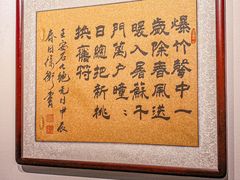 爆竹聲中一
歲除春風送
暖入屠蘇千
門萬戶瞳〻
日總把新桃
換舊符
王安石 元日 甲辰
春月